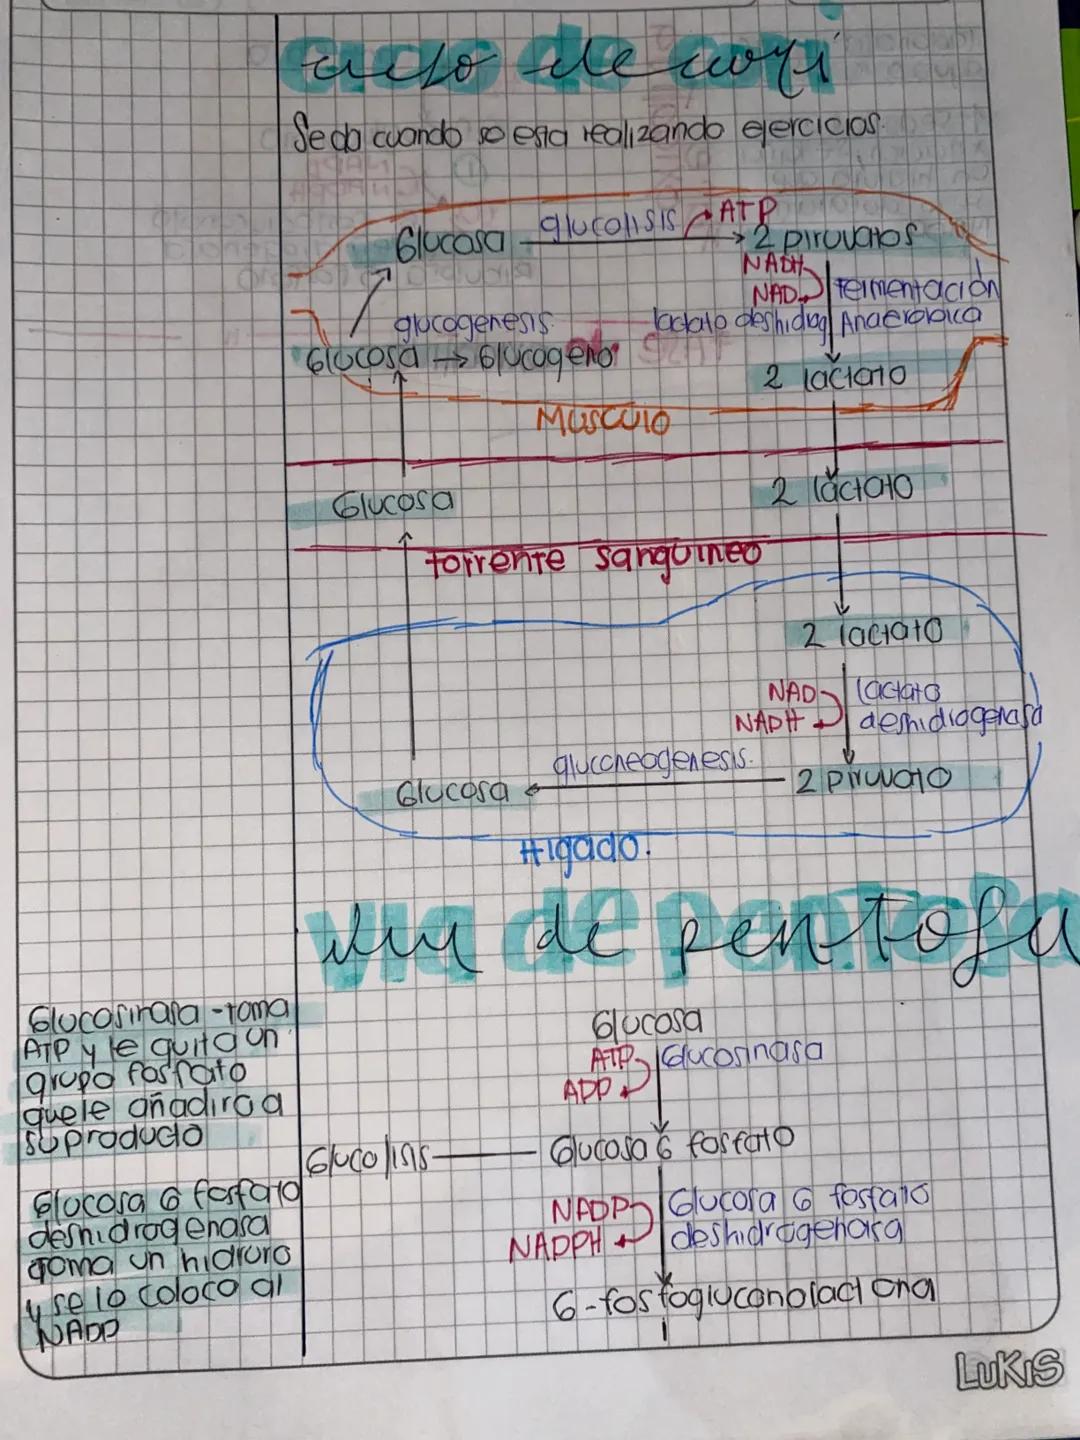 ciclo de cori
Se da cuando se esta realizando ejercicios.
Glucosa glucolisis ATP 2 piruvatos
NADH
NAD fermentación
glucogenesis lactato deshidrog Anaerobica
Glucosa → Glucogeno
2 lactato
Musculo
Glucosa 2 lactato
torrente sanguineo
2 lactato
NAD lactato
NADH deshidrogenasa
Glucosa gluconeogenesis. 2 piruvato
Higado.
via de pentosa
Glucosinasa - toma
ATP y le quita un
grupo fosfato
que le añadira a
su producto
Glucosa 6 fosfato
deshidrogenasa
toma un hidruro
y se lo coloco al
NADP
Glucosa
ATP Glucosinasa
ADP
Glucolisis Glucosa 6 fosfato
NADP Glucosa 6 fosfato
NADPH deshidrogenasa
6-fosfogluconolactona
LUKIS